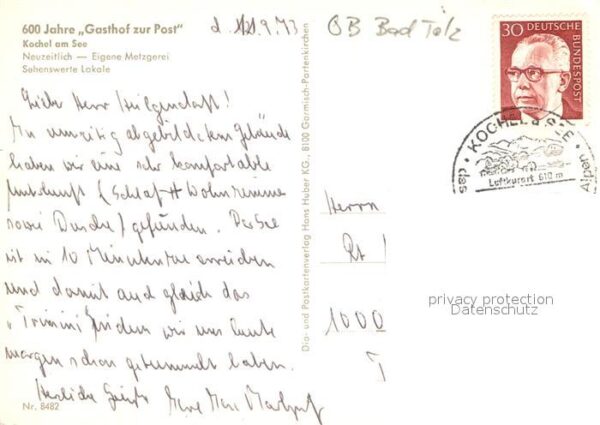 600 Jahre „Gasthof zur Post"
Kochel am See
Neuzeitlich — Eigene Metzgerei
Sehenswerte Lokale
d. 9.73
OB Bad Tölz
Herr
In umseitig abgebildetem Gebäude
haben wir eine sehr komfortable
Unterkunft (Schlaf + Wohnzimmer
sowie Dusche) gefunden. Der See
ist in 10 Minuten zu erreichen
und damit auch gleich das
"Trimini", in dem wir uns heute
morgen schon getummelt haben.
Herzliche Grüße
Nr. 8482
Dia- und Postkartenverlag Hans Huber KG., 8100 Garmisch-Partenkirchen
30 DEUTSCHE BUNDESPOST
KOCHEL a. SEE
Luftkurort 610 m
Alpen
Herrn
1000
privacy protection
Datenschutz